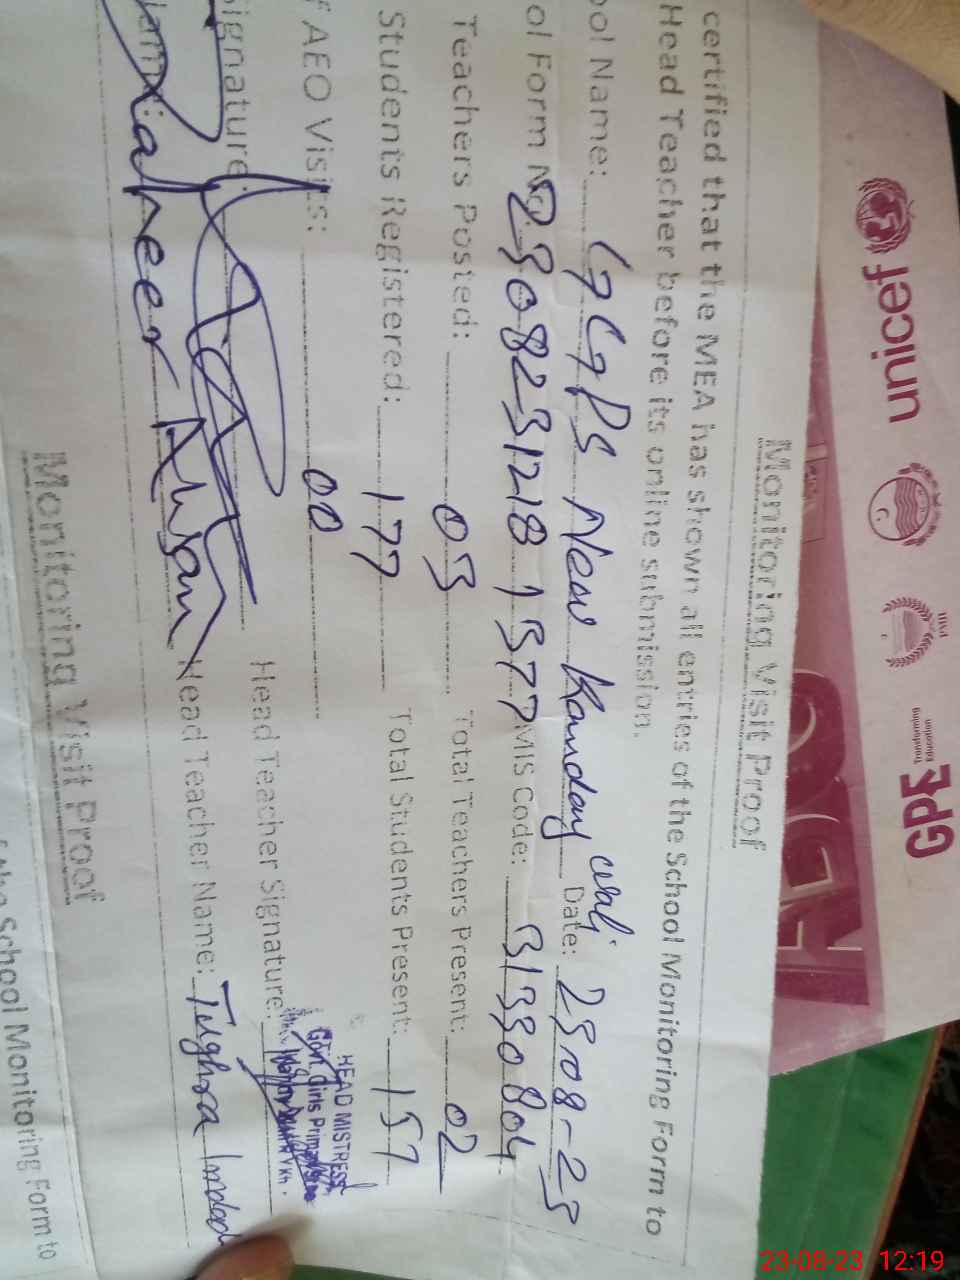 unicef
Transforming Education
GPE
Monitoring Visit Proof
certified that the MEA has shown all entries of the School Monitoring Form to
Head Teacher before its online submission.
ool Name: GGPS New Kanday wali Date: 23-08-23
ol Form No. 23082312181377 MIS Code: 31330804
Teachers Posted: 03 Total Teachers Present: 02
Students Registered: 177 Total Students Present: 157
f AEO Visits: 00
Signature: Head Teacher Signature: HEAD MISTRESS
Govt. Girls Primary
Name: Zaheer Ahsan Head Teacher Name: Tughra Imdad
Monitoring Visit Proof
School Monitoring Form to
23-08-23 12:19